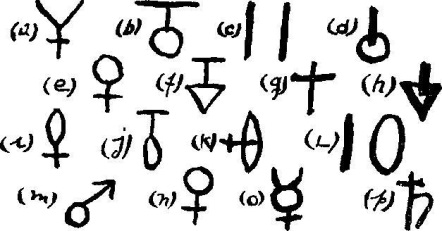 (a) (b) (c) (d)
(e) (f) (g) (h)
(i) (j) (k) (L)
(m) (n) (o) (p)